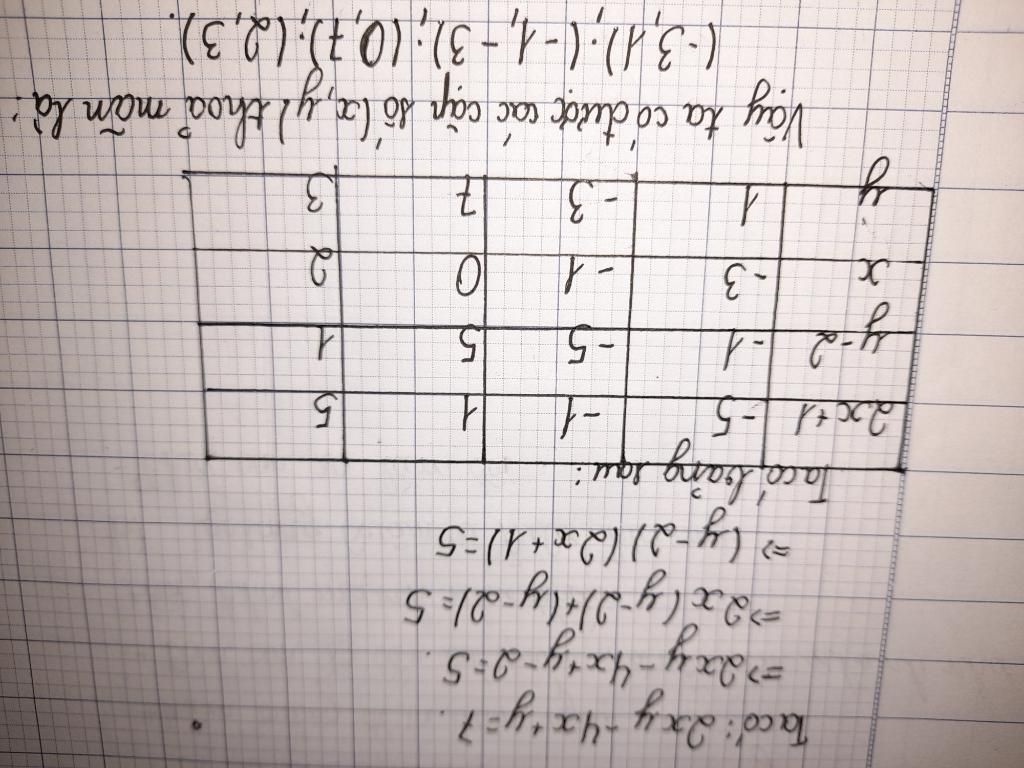 Ta có: 2xy - 4x + y = 7.
=> 2xy - 4x + y - 2 = 5.
=> 2x (y - 2) + (y - 2) = 5
=> (y - 2) (2x + 1) = 5
Ta có bảng sau:
2x + 1 -5 -1 1 5
y - 2 -1 -5 5 1
x -3 -1 0 2
y 1 -3 7 3
Vậy ta có được các cặp số (x, y) thoả mãn là:
(-3, 1); (-1, -3); (0, 7); (2, 3).